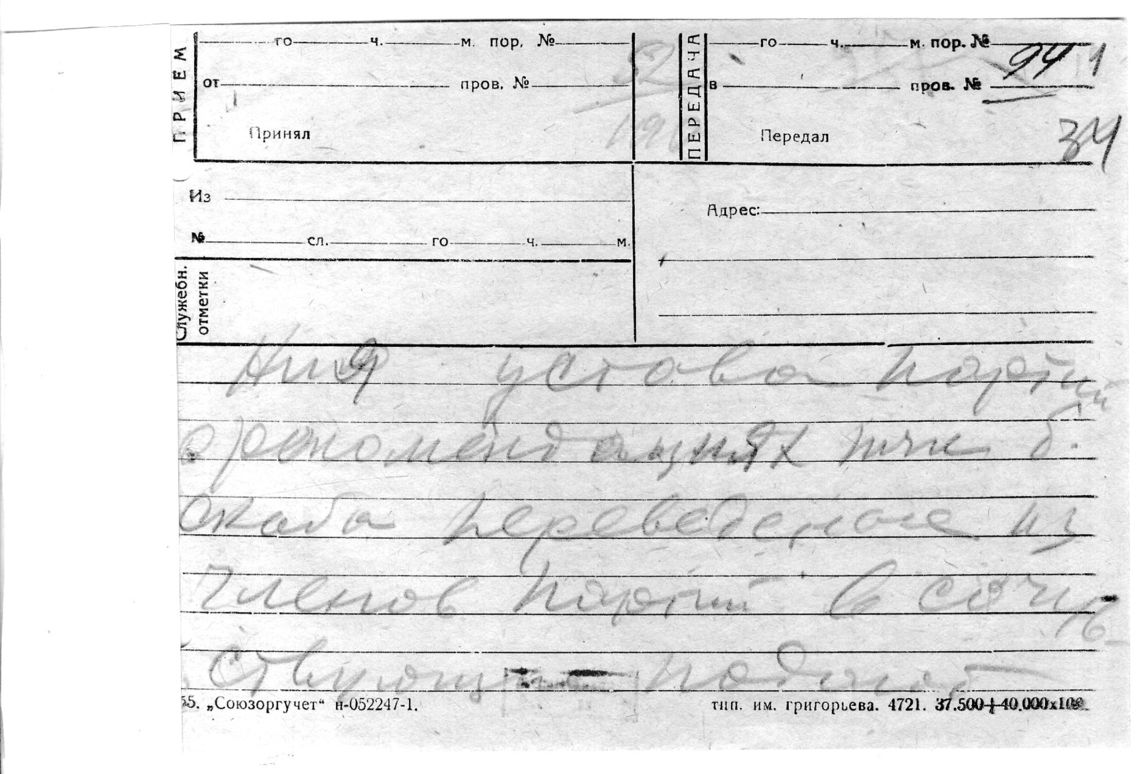 ПРИЕМ
го ч. м. пор. №
от пров. №
Принял
ПЕРЕДАЧА
го ч. м. пор. №
в пров. №
Передал
94 1
34
Из
№ сл. го ч. м.
Адрес:
Служебн. отметки
ния устава партии
о рекомендациях тчк б.
переведенные из
членов партии в сочув-
ствующ
55. „Союзоргучет“ н-052247-1.
тип. им. григорьева. 4721. 37.500+40.000х100.